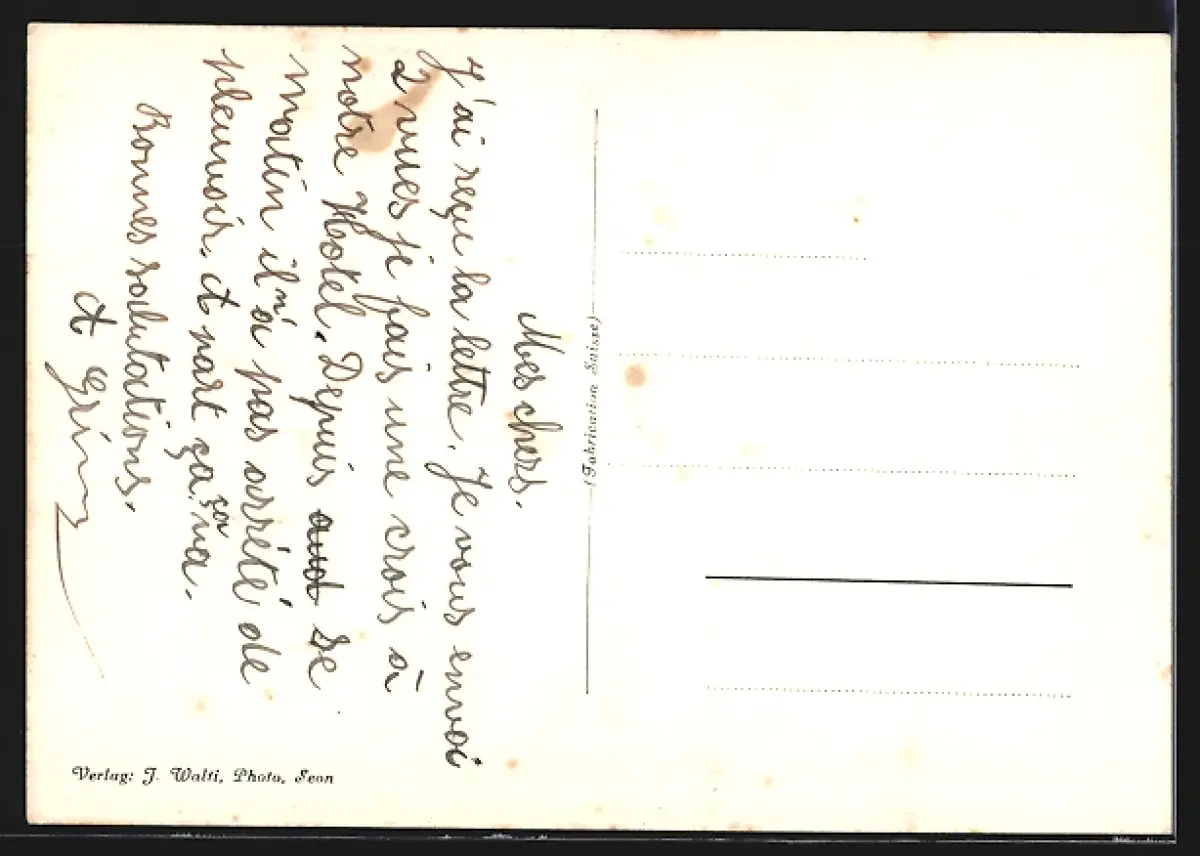 Mes chers.
J'ai reçu la lettre. Je vous envoi
2 vues je fais une crois à
notre Hotel. Depuis aut se
matin il n'a pas arrété de
pleuvoir. et part ça ça va.
Bonnes salutations.
et
(Fabrication Suisse)
Verlag: J. Walti, Photo, Seon